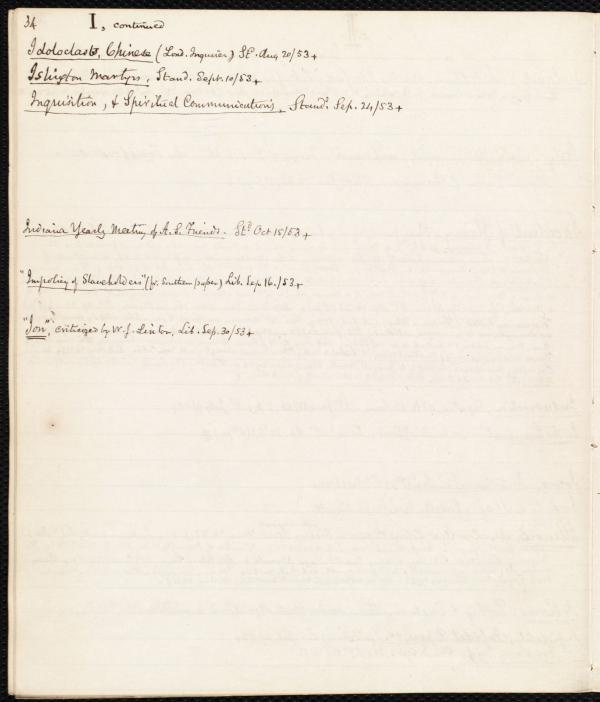 34 I, continued
Idoloclasts, Chinese (Lond. Inquirer) St. Aug 20/53+
Islington Martyrs, Stand. Sept. 10/53+
Inquisition, & Spiritual Communications, Stand. Sep. 24/53+
Indiana Yearly Meeting of A.S. Friends. St. Oct 15/53+
"Impolicy of Slaveholders" (fr. Southern paper) Lib. Sep 16./53+
"Ion", criticized by W. J. Linton, Lib. Sep. 30/53+